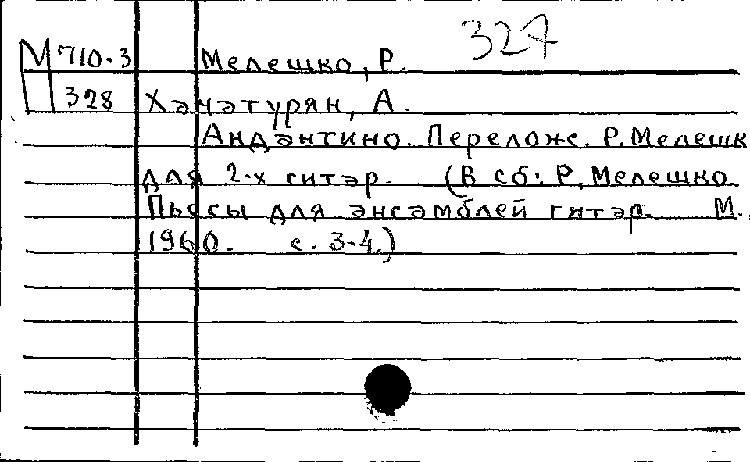 324
М 710-3 Мелешко, Р.
328 Хачатурян, А.
Андантино. Перелож. Р. Мелешк
для 2-х гитар. (В сб: Р. Мелешко
Пьесы для ансамблей гитар. М.,
1960. с. 3-4.)